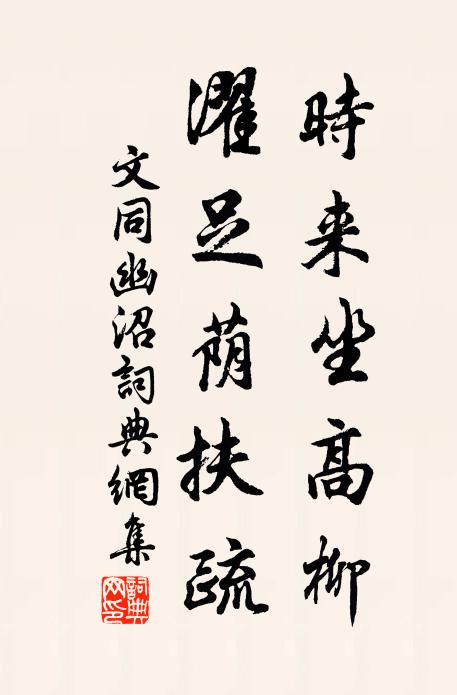 時来坐高柳
濯足荫扶疏
文同幽沼詞典網集
詞典网印